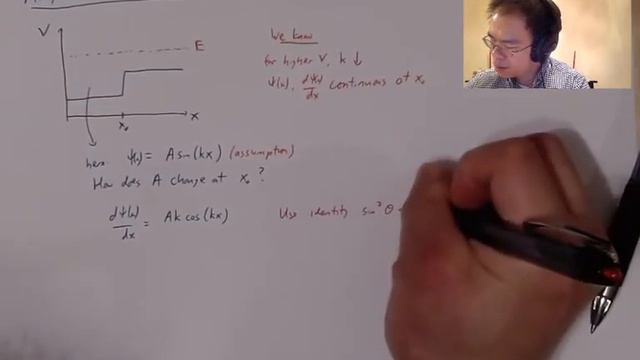 V
E
We know
for higher V, k ↓
ψ(x), dψ(x)/dx continuous at x₀
x
x₀
here: ψ(x) = A sin(kx) (assumption)
How does A change at x₀?
dψ(x)/dx = Ak cos(kx)
Use identity sin²θ